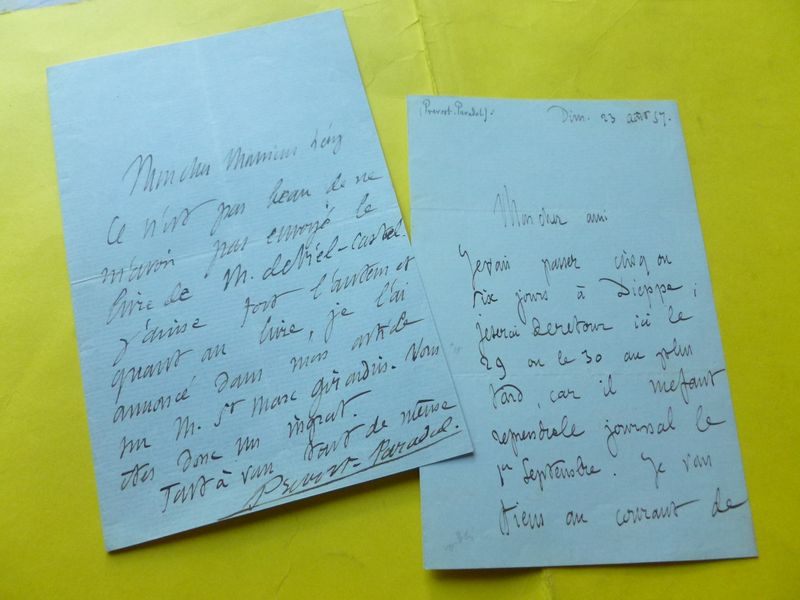 Mon cher Monsieur Lévy
Ce n'est pas beau de ne
m'avoir pas envoyé le
livre de M. de Viel-Castel.
J'aime fort l'auteur et
quant au livre, je l'ai
annoncé dans mon article
sur M. St Marc Girardin. Vous
êtes donc un ingrat.
Tout à vous tout de même
Prevost-Paradol.
(Prevost-Paradol).
Dim. 23 août 57.
Mon cher ami
Je vais passer cinq ou
six jours à Dieppe ;
je serai de retour ici le
29 ou le 30 au plus
tard, car il me faut
reprendre le journal le
1er Septembre. Je vous
tiens au courant de